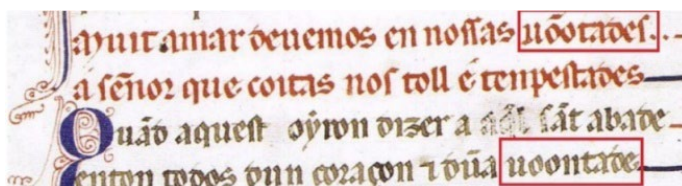 ayuit amar deuemos en nossas uõotades.
a señor que coitas nos toll e tenpestades
Quãd aquest oỹron dizer a sãt abade
enton todos dun coraçon ⁊ dũa uoontade